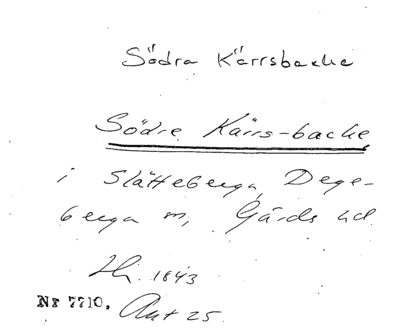 Södra Kärrsbacke
Södre Kärrs-backe
i Slätteberga, Dege-
berga sn, Gärds hd.
1843
Nr 7710. Akt 25.